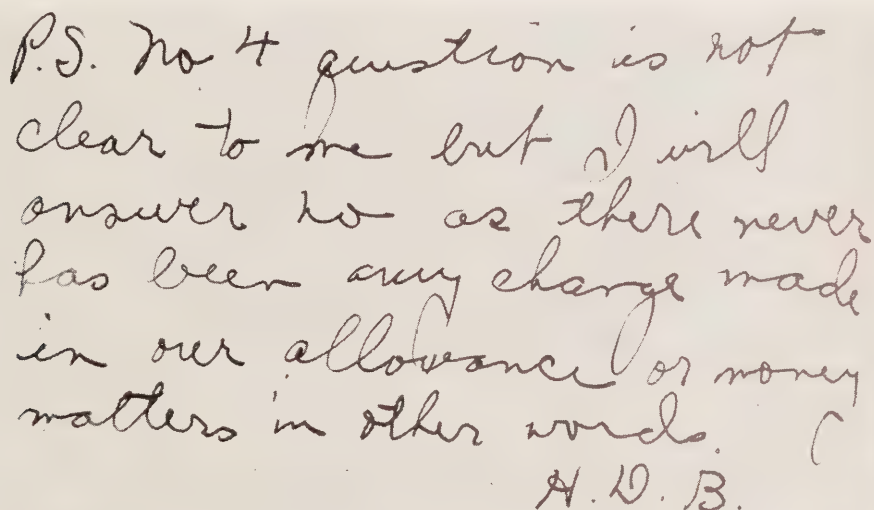 P.S. No 4 question is not
clear to me but I will
answer no as there never
has been any change made
in our allowance or money
matters in other words.
H.D.B.